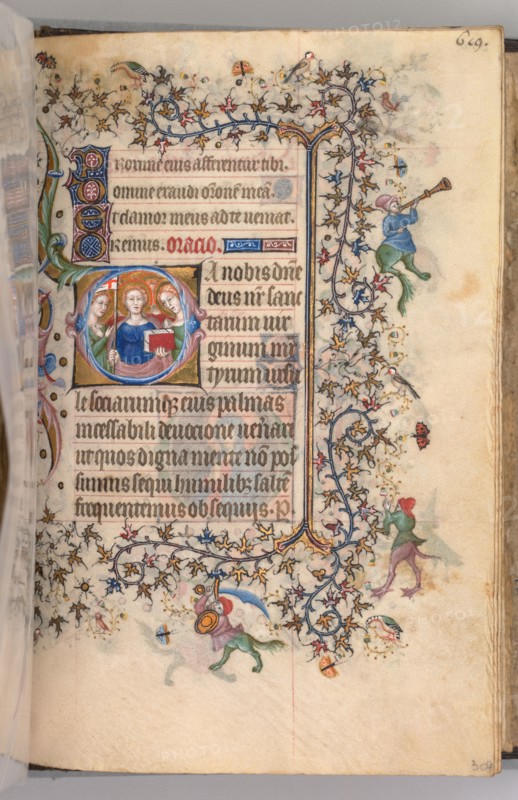 629.
Proxime eius afferentur tibi.
Domine exaudi oronē meā.
Et clamor meus ad te ueniat.
Oremus. oracio.
Da nobis dn̄e
deus nr̄ sanc
tarum uir
ginum
tyrum
le sociarumqꝫ eius palmas
incessabili deuocione uenari
ut quos digna mente nō pos
sumus sequi humilibꝫ saltē
frequentemus obsequijs. P
304